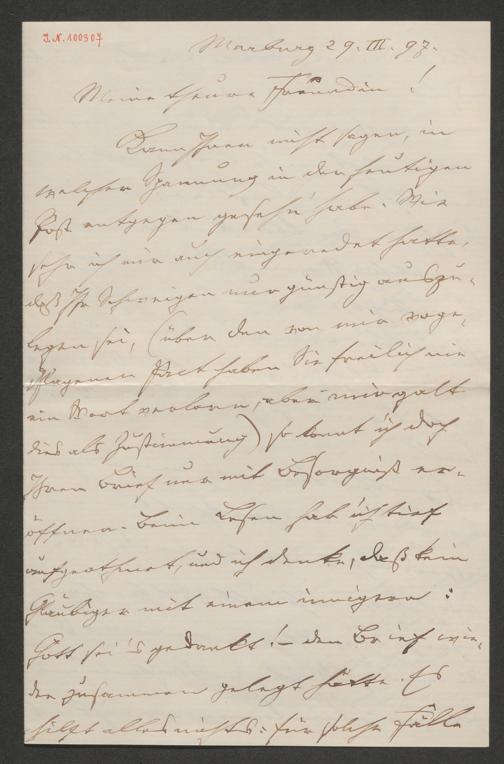 J.N. 100307
Marburg 29. III. 97.
Meine theure Freundin!
Kann Ihnen nicht sagen, in
welcher Spannung ich der heutigen
Post entgegen gesehn habe. Wie
sehr ich mir auch eingeredet hatte,
daß Ihr Schweigen nur günstig auszu-
legen sei, (über den von mir vorge-
schlagenen Pact haben Sie freilich nie
ein Wort verloren, aber mir galt
dies als Zustimmung) so konnt ich doch
Ihren Brief nur mit Besorgniß er-
öffnen. Beim Lesen hab ich tief
aufgeathmet, und ich denke, daß kein
Gläubiger mit einem innigern:
Gott sei's gedankt! – den Brief wie-
der zusammen gelegt hätte. Es
hilft alles nichts: für solche Fälle